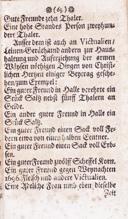 ( 63 )
Gute Freunde zehn Thaler.
Eine hohe Standes Person zweyhun-
dert Thaler.
Ausser dem ist auch an Victualien
Leinen-Geräth und andern zur Haus-
haltung und Auferziehung der armen
Waysen nöthigen Dingen von Christli-
chen Hertzen einiger Beytrag gesche-
hen zum Exempel:
Ein guter Freund in Halle verehrte ein
Stück Saltz nebst fünff Thalern an
Gelde.
Ein ander guter Freund in Halle ein
Stück Saltz.
Ein guter Freund einen Sack voll Fe-
dern von einem halben Centner.
Ein guter Freund einen Sack voll Erb-
sen.
Ein guter Freund zwölff Scheffel Korn.
Ein guter Freund gegen Weynachten
Fisch und andere Victualien.
Eine Adliche Frau und eben dieselbe
Zeit